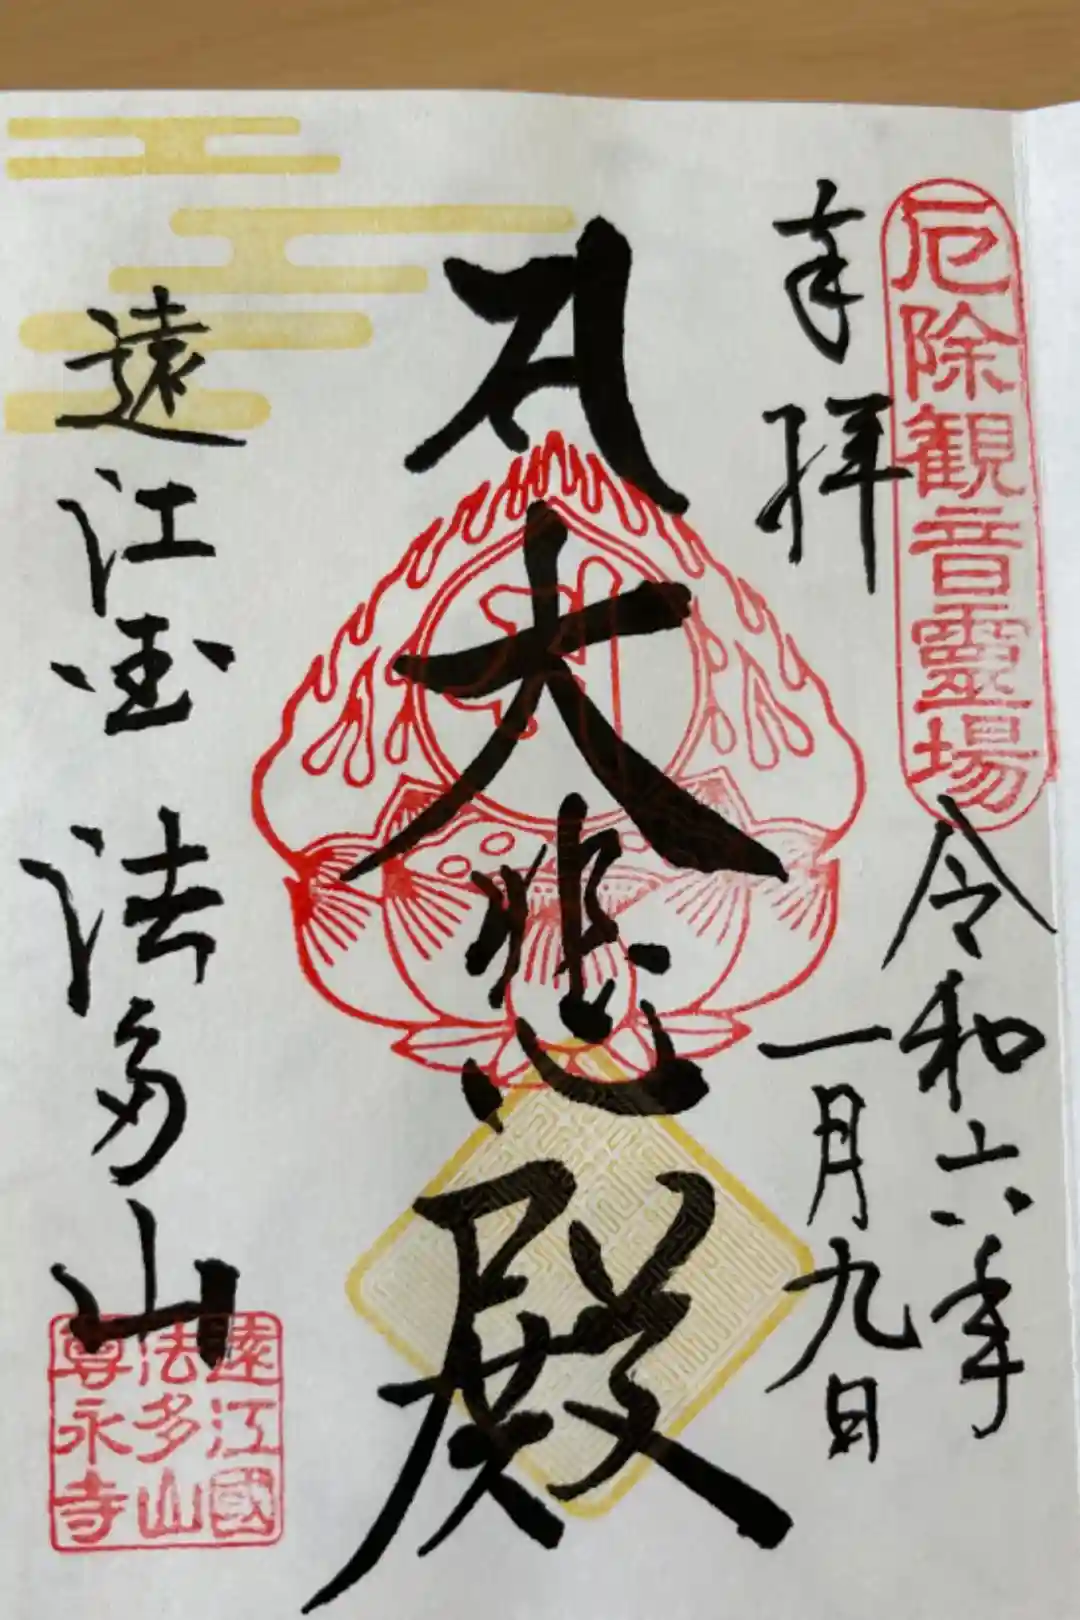 厄除観音霊場
奉拝
令和六年
一月九日
大悲殿
遠江国 法多山
遠江國
法多山
尊永寺